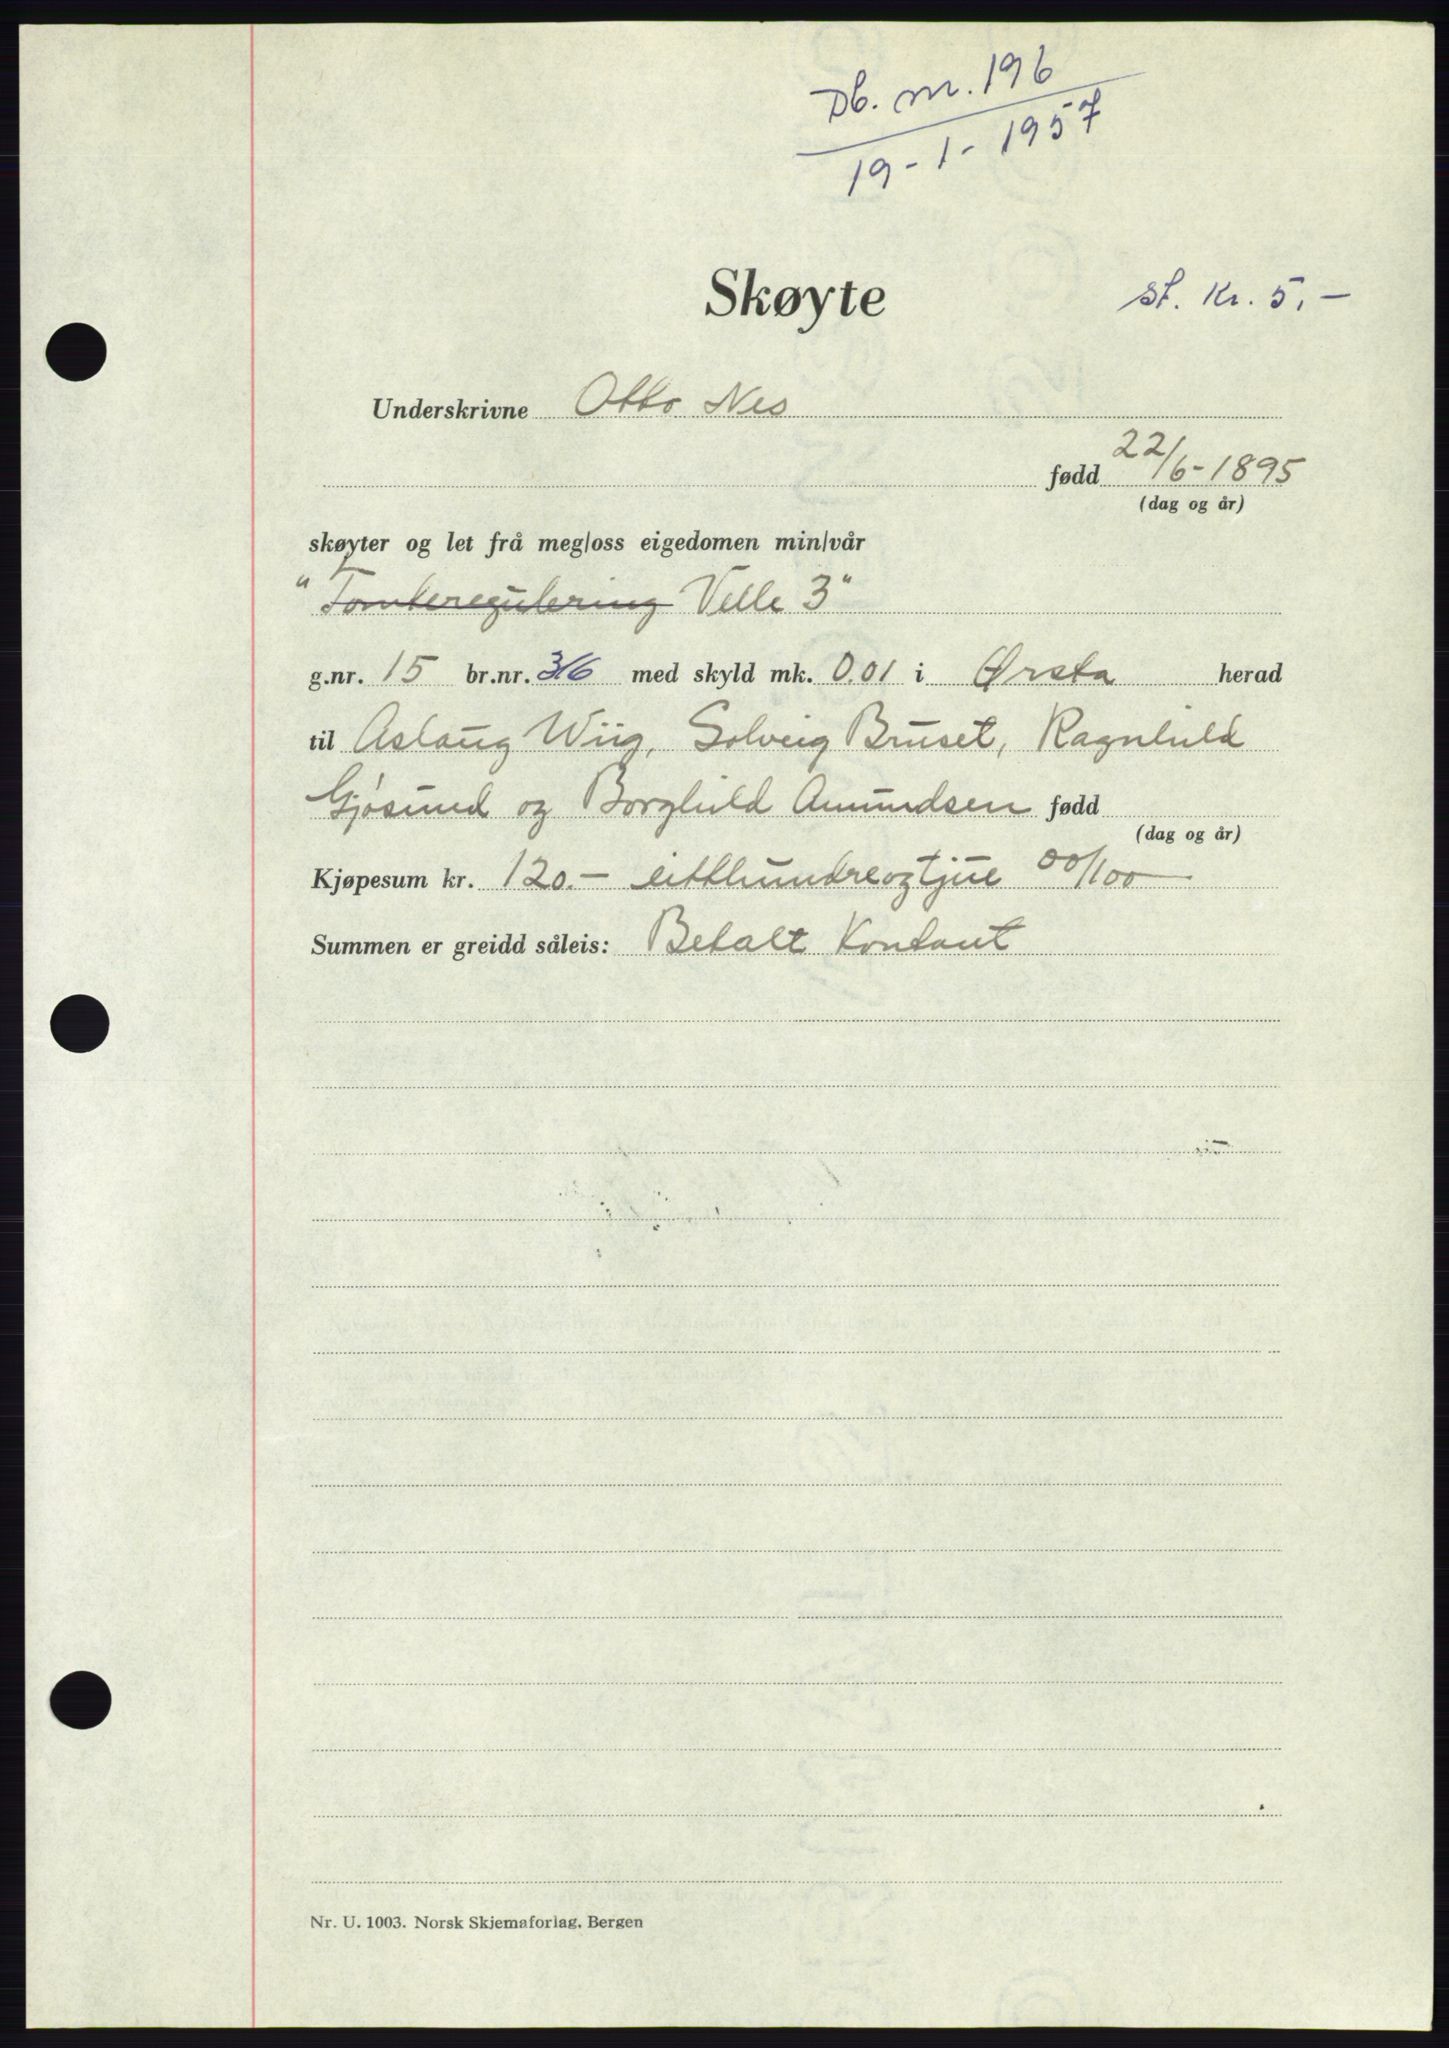 Db. nr. 196
19-1-1957
Skøyte
st. kr. 5,-
Underskrivne Otto Nes
fødd 22/6-1895
(dag og år)
skøyter og let frå meg/oss eigedomen min/vår
"Tomteregulering Velle 3"
g.nr. 15 br.nr. 316 med skyld mk. 0.01 i Ørsta herad
til Aslaug Wiig, Solveig Bruset, Ragnhild
Gjøsund og Borghild Amundsen fødd
(dag og år)
Kjøpesum kr. 120.- eitthundreogtjue 00/100
Summen er greidd såleis: Betalt Kontant
Nr. U. 1003. Norsk Skjemaforlag. Bergen